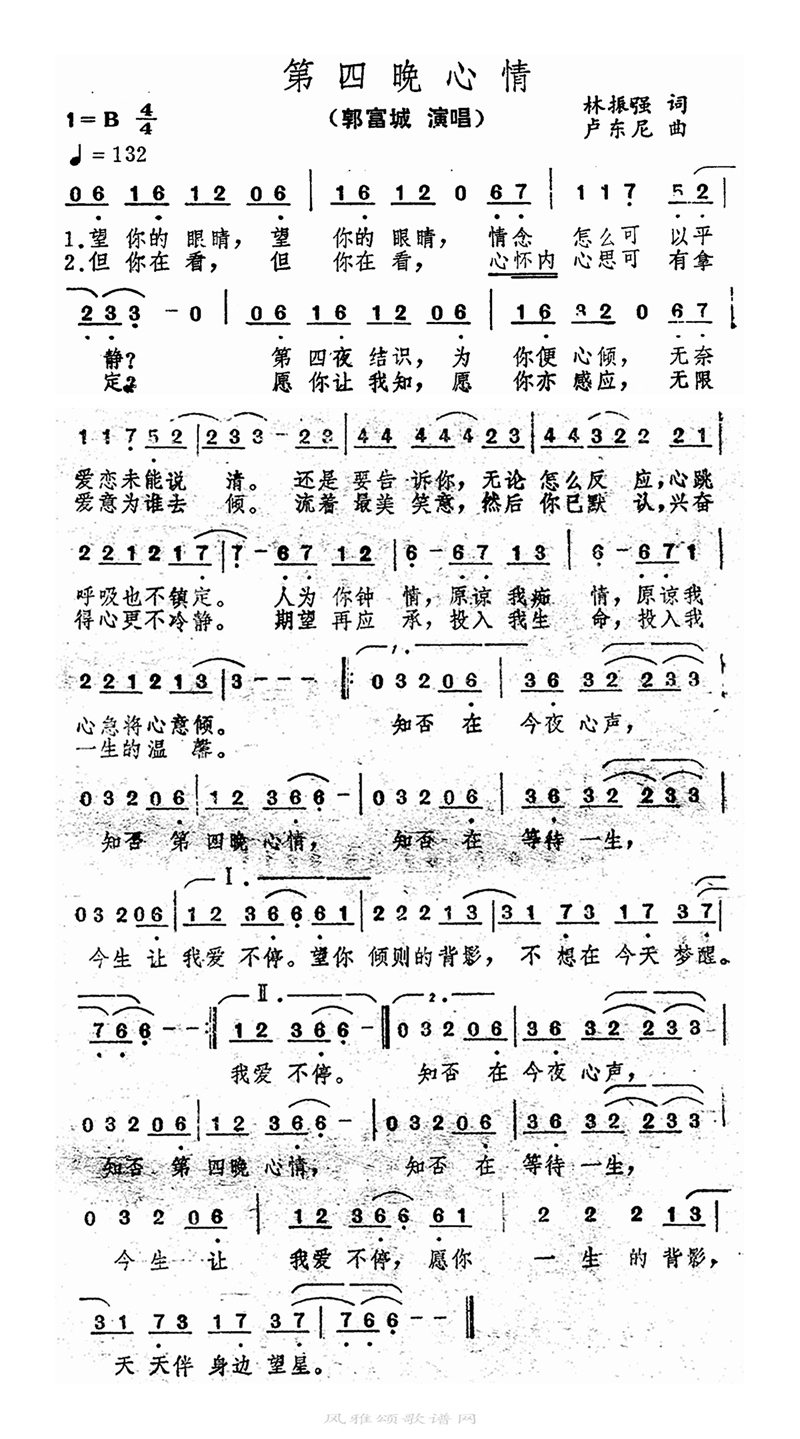 第四晚心情
1=B 4/4
(郭富城 演唱)
林振强 词
卢东尼 曲
♩=132
06 16 12 06 | 16 12 0 67 | 117 52 |
1.望你的眼睛，望 你的眼睛，情念 怎么可 以平
2.但你在看，但 你在看，心怀内 心思可 有拿
233 - 0 | 06 16 12 06 | 16 32 0 67 |
静？ 第四夜结识，为 你便心倾，无奈
定？ 愿你让我知，愿 你亦感应，无限
117 52 | 233 - 23 | 44 44423 | 44322 2 21 |
爱恋未能说 清。还是要告诉你，无论怎么反 应，心跳
爱意为谁去 倾。流着最美笑意，然后你已默 认，兴奋
221217 | 7 - 67 12 | 6 - 67 13 | 6 - 671 |
呼吸也不镇定。人为你钟 情，原谅我痴 情，原谅我
得心更不冷静。期望再应 承，投入我生 命，投入我
221213 | 3 - - - :‖ 1. 03206 | 36 32 233 |
心急将心意倾。 知否 在 今夜心声，
一生的温 馨。
03206 | 12 366 - | 03206 | 36 32 233 |
知否 第四晚心情， 知否 在 等待一生，
I.
03206 | 12 36661 | 22213 | 31 73 17 37 |
今生 让我爱不停。望你 倾则的背影，不想在今天梦醒。
II. 2.
766 - - :‖ 12 366 - ‖ 03206 | 36 32 233 |
我爱 不停。 知否 在 今夜心声，
03206 | 12 366 - | 03206 | 36 32 233 |
知否 第四晚心情， 知否 在 等待一生，
0 3 2 06 | 12 366 61 | 2 2 2 13 |
今生 让 我爱不停，愿你 一生的背影，
31 73 17 37 | 766 - - ‖
天天伴身边望星。
风雅颂歌谱网